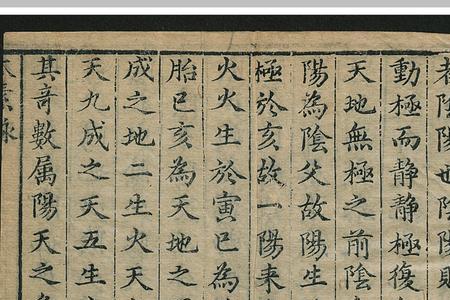 者陰陽也陰陽
動極而静静極復
天地無極之前陰
陽為陰父故陽生
極於亥故一陽来
火火生於寅巳為
胎巳亥為天地之
成之地二生火天
天九成之天五生
其竒數属陽天之